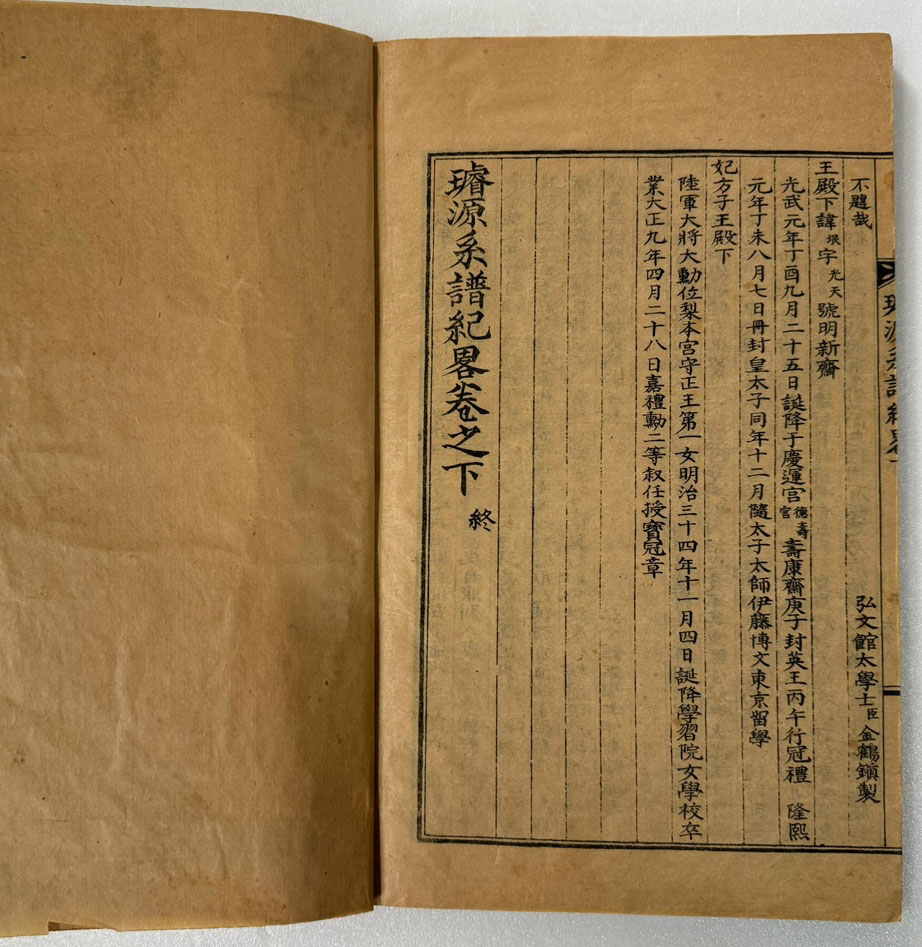 不韙哉 弘文館太學士臣金鶴鎭製
王殿下諱垠字光天號明新齋
光武元年丁酉九月二十五日誕降于慶運宮德壽宮壽康齋庚子封英王丙午行冠禮 隆熙
元年丁未八月七日冊封皇太子同年十二月隨太子太師伊藤博文東京留學
妃方子王殿下
陸軍大將大勳位梨本宮守正王第一女明治三十四年十一月四日誕降學習院女學校卒
業大正九年四月二十八日嘉禮勳二等敍任授寶冠章
璿源系譜紀畧卷之下 終